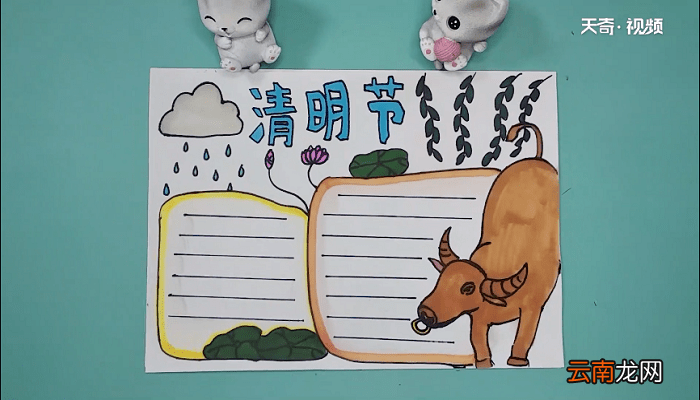 天奇·视频
清明节
云南龙网